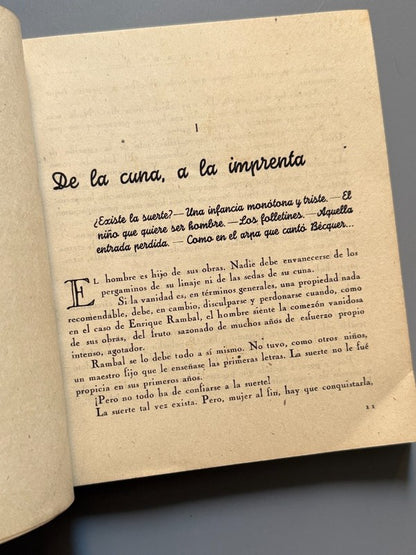 I
De la cuna, a la imprenta
¿Existe la suerte? — Una infancia monótona y triste. — El
niño que quiere ser hombre. — Los folletines. — Aquella
entrada perdida. — Como en el arpa que cantó Bécquer...
EL hombre es hijo de sus obras. Nadie debe envanecerse de los
pergaminos de su linaje ni de las sedas de su cuna.
Si la vanidad es, en términos generales, una propiedad nada
recomendable, debe, en cambio, disculparse y perdonarse cuando, como
en el caso de Enrique Rambal, el hombre siente la comezón vanidosa
de sus obras, del fruto sazonado de muchos años de esfuerzo propio
intenso, agotador.
Rambal se lo debe todo a sí mismo. No tuvo, como otros niños,
un maestro fijo que le enseñase las primeras letras. La suerte no le fué
propicia en sus primeros años.
¡Pero no todo ha de confiarse a la suerte!
La suerte tal vez exista. Pero, mujer al fin, hay que conquistarla,
11